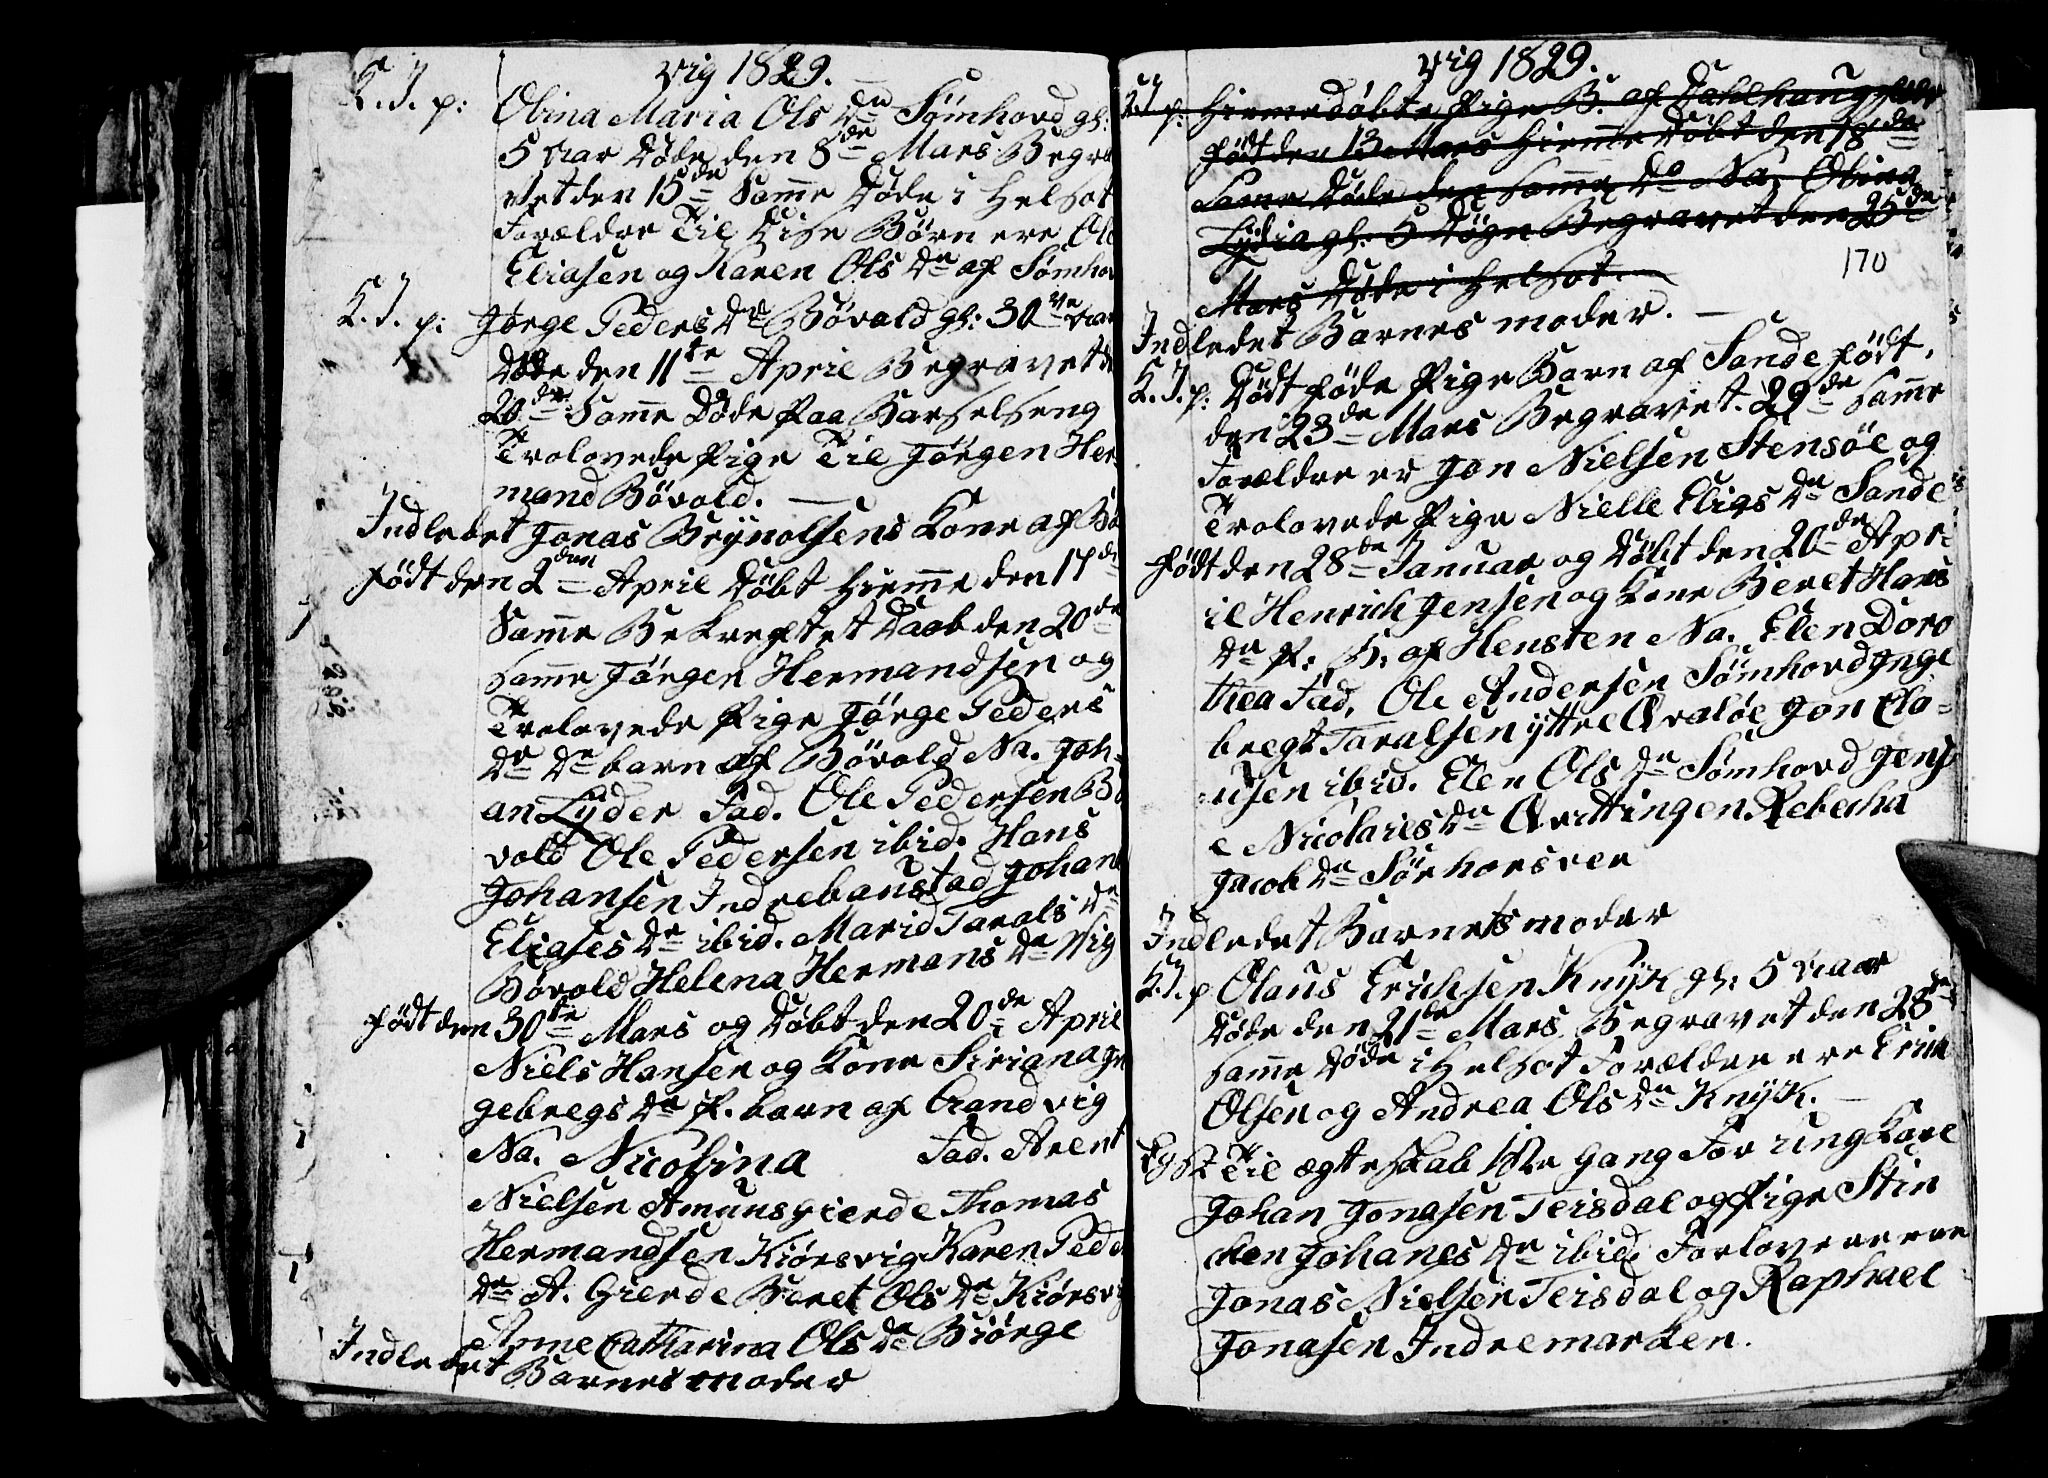 Vig 1829.
K. J. p: Olina Maria Ols Dn Sømhovd gl:
5 Aar Døde den 8de Mars Begra
vet den 15de Samme Døde i Helsot
Forældre Til Dise Børn ere Ole
Eliasen og Karen Ols Dr af Sømhov
K. J. p: Jørge Peders Dr Bövold gl: 30ve Aar
Døde den 11te April Begravet d
20de Samme Døde Paa Barselseng
Trolovede Pige Til Jørgen Her
mand Bövold. —
Indledet Jonas Brynolsens Kone af Bö
født den 2den April Døbt Hiemme den 17de
Samme Bekreftet Daab den 20de
Samme Jörgen Hermandsen og
Trolovede Pige Jørge Peders
Dr Dr barn af Bövold Na. Joh-
an Lyder Fad. Ole Pedersen Bö
vold Ole Pedersen ibid. Hans
Johansen Indrebaustad Johan
Eliases Dr ibid. Marid Tarals Dr
Bövold Helena Hermans Dr Vig
født den 30te Mars og Døbt den 20de April
Niels Hansen og Kone Siriana In
gebregs Dr P. barn af Aandvig
Na. Nicolina Fad. Arent
Nielsen Amunsgierde Thomas
Hermandsen Kiørsvig Karen Peder
Dr A. Gierde Beret Ols Dr Kiørsvi
Anne Catharina Ols Dr Biørge
Indledet Barnes moder
Vig 1829.
K. J. p: Hiemedøbte Pige B. af Dahlhaug
født den 13 Mars Hiemme Døbt den 18de
Same Døde den Samme Do Na. Olina
Lydia gl: 5 Døgn Begravet den 25de
Mars Døde i Helsot.
170
Indledet Barnes moder. —
K. J. p: Dödt føde Pige Barn af Sande født
den 23de Mars Begravet. 29de Samme
Forældre er Jon Nielsen Stensöe og
Trolovede Pige Nielle Elias Dr Sande
født den 28de Januar og Döbt den 20de Apr
il Henrich Jensen og Kone Beret Hans
Dr P. B. af Hensten Na. Elen Doro
thea Fad. Ole Andersen Sømhovd Inge
bregt Taralsen yttre Qvaløe Jon Cla-
usen ibid. Elen Ols Dr Sømhovd Jens
e Nicolaies Dr Qvittingen Rebecha
Jacob Dr Sørhorsver
Indledet Barnets moder
K. J. p Olaus Erichsen Knyk gl: 5 Aar
Döde den 21de Mars Begravet den 28de
Samme Döde i Helsot Forældre ere Erik
Olsen og Andrea Ols Dr Knyk. —
Lyst Til ægteskab 1ste Gang For ung Karl
Johan Jonasen Teisdal og Pige Stin
chen Johanes Dr ibid. Forlovere ere
Jonas Nielsen Teisdal og Raphael
Jonasen Indremarken.